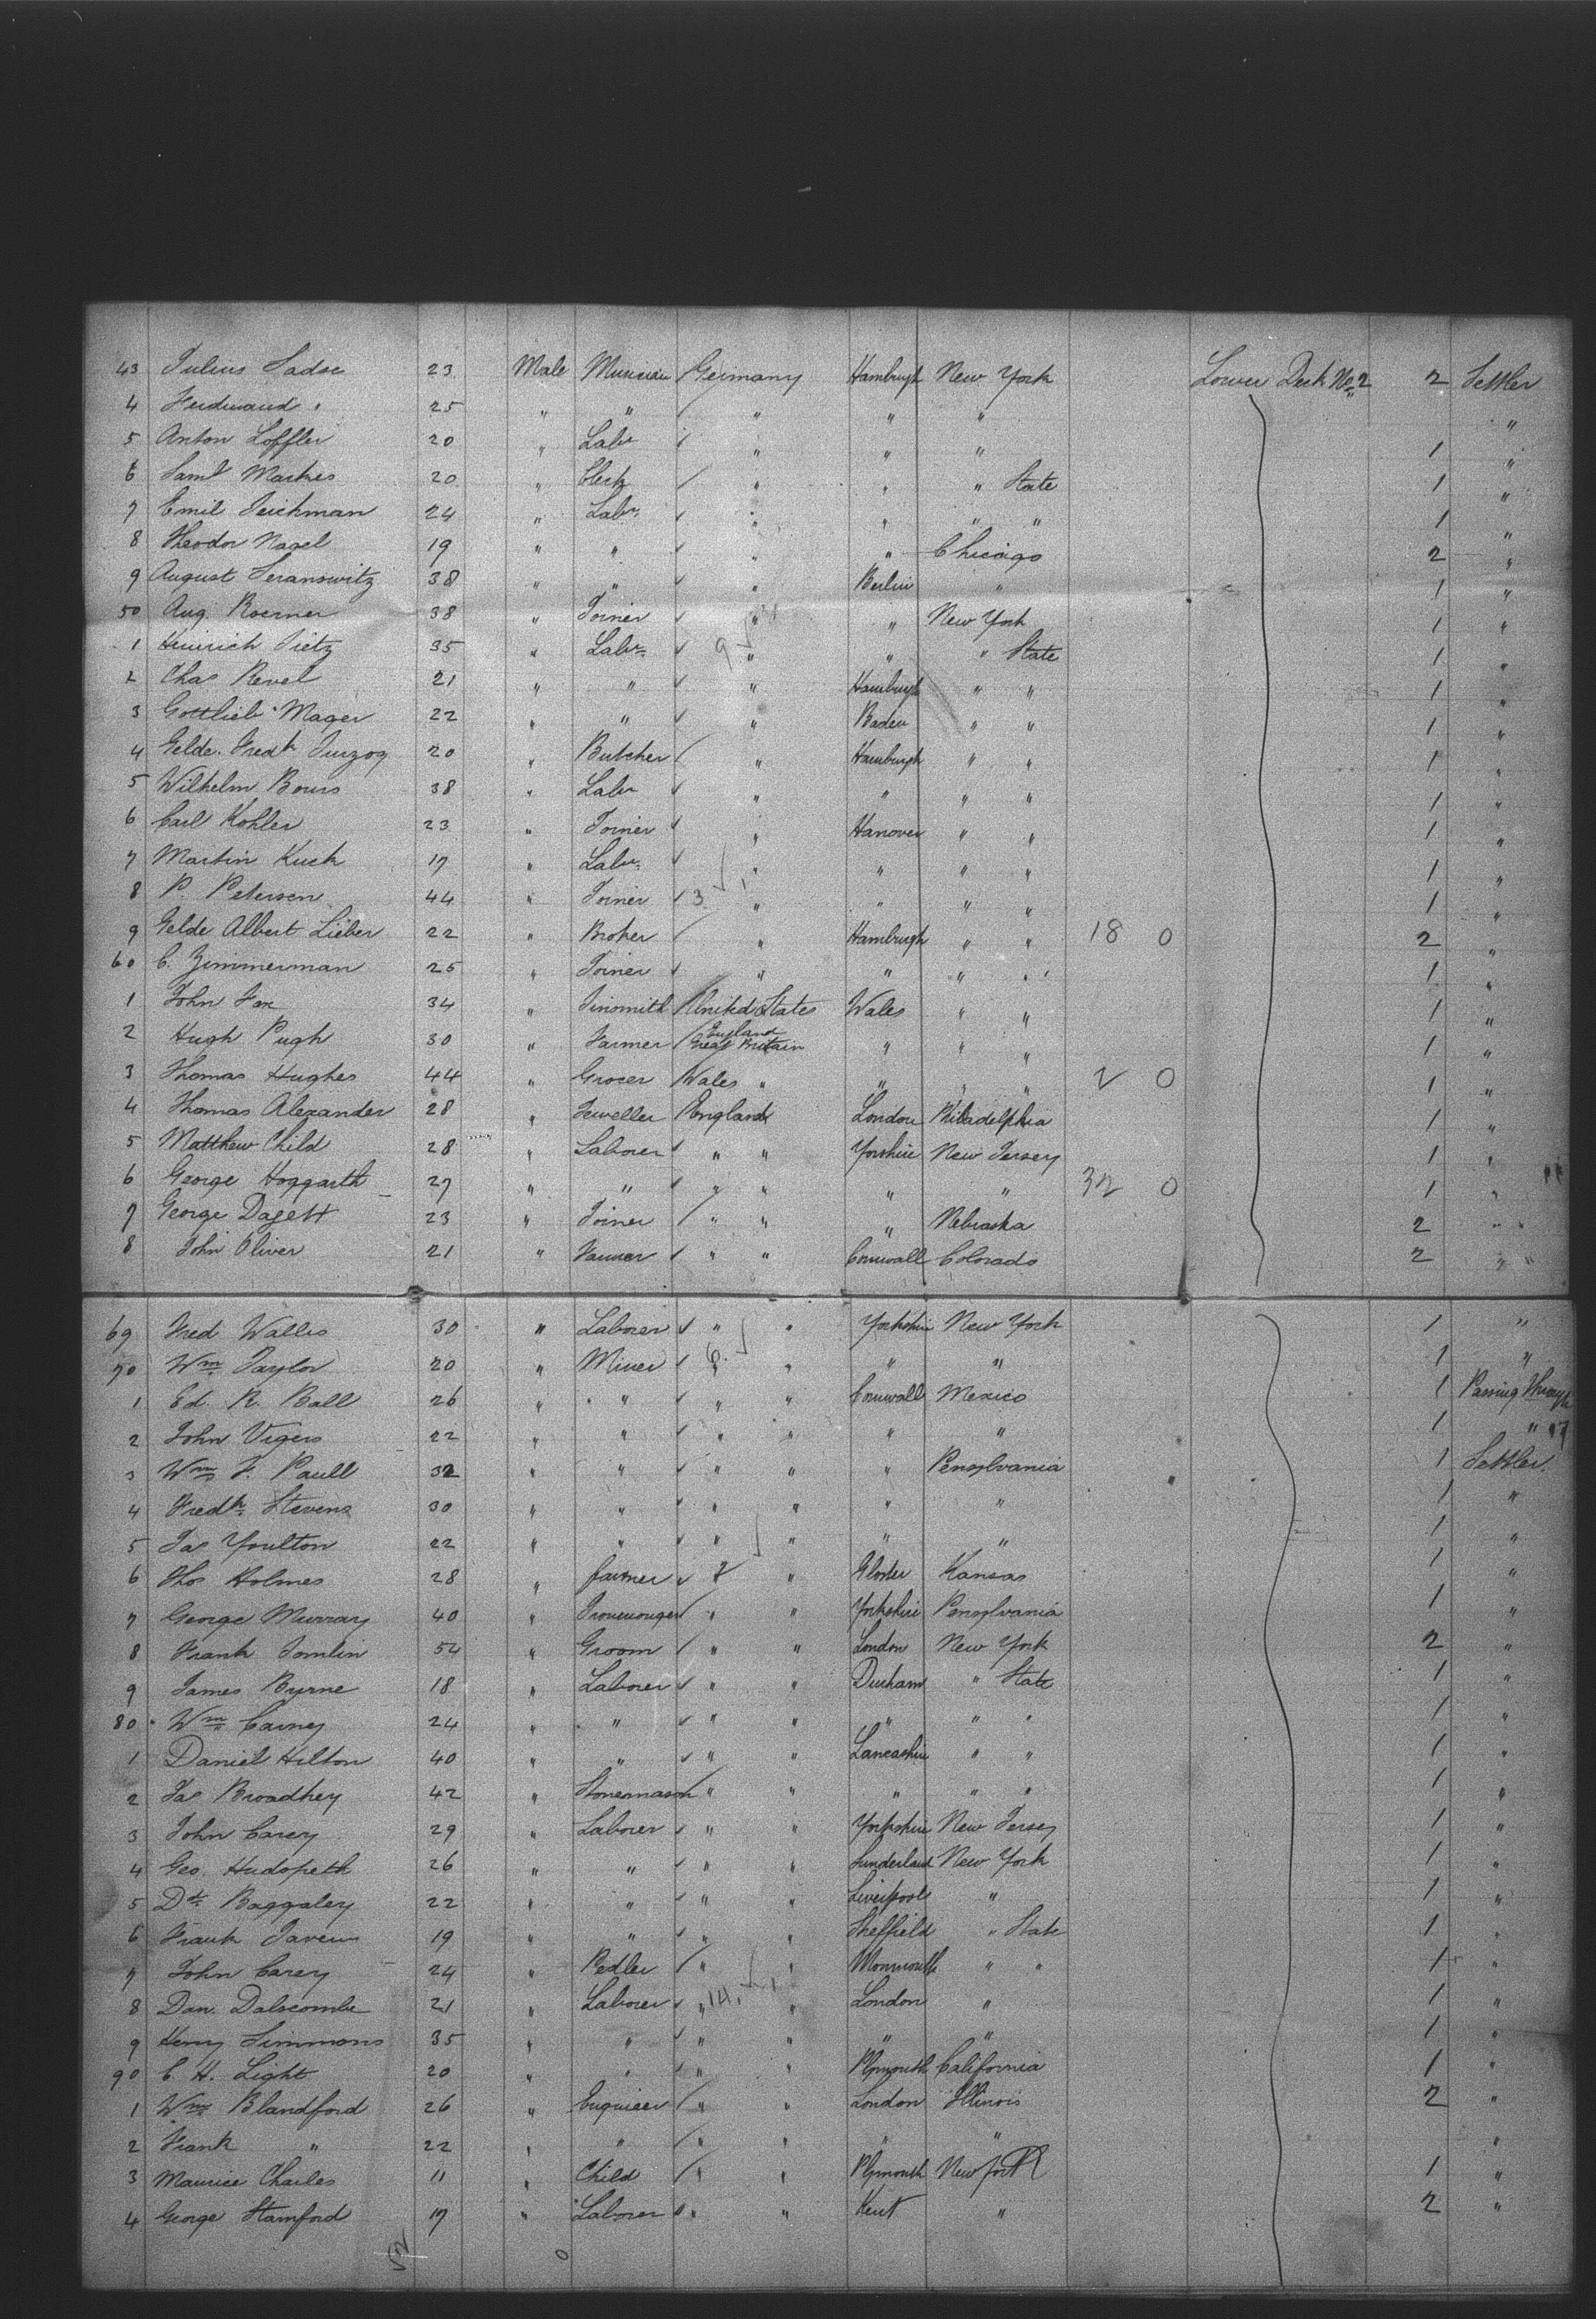 43 Julius Sadse 23 Male Musician / Germany Hamburgh New York Lower Deck No 2 2 Settler
4 Ferdinand " 25 " " / " " " "
5 Anton Loffler 20 " Labr ✓ " " " 1 "
6 Saml Markes 20 " Clerk / " " " State 1 "
7 Emil Teichman 24 " Labr ✓ " " " " 1 "
8 Theodor Nagel 19 " " ✓ " " Chicago 2 "
9 August Seranowitz 38 " " ✓ " Berlin " 1 "
50 Aug. Boerner 38 " Joiner ✓ " " New York 1 "
1 Heinrich Tietz 35 " Labr ✓ 9 " " " State 1 "
2 Chas Revel 21 " " ✓ " Hamburgh " " 1 "
3 Gottlieb Mager 22 " " ✓ " Baden " " 1 "
4 Gelde. Fredk 20 " Butcher / " Hamburgh " " 1 "
5 Wilhelm Bours 38 " Labr ✓ " " " " 1 "
6 Carl Kohler 23 " Joiner ✓ " Hanover " " 1 "
7 Martin Kuck 17 " Labr ✓ " " " " 1 "
8 P. Petersen 44 " Joiner ✓ 3 " " " " 1 "
9 Gelde Albert Lieber 22 " Broker / " Hamburgh " " 18 0 2 "
60 C. Zimmerman 25 " Joiner ✓ " " " " 1 "
1 John Fox 34 " Tinsmith / United States Wales " " 1 "
2 Hugh Pugh 30 " Farmer / England Great Britain " " " 1 "
3 Thomas Hughes 44 " Grocer / Wales " " " " 2 0 1 "
4 Thomas Alexander 28 " Jeweller / England London Philadelphia 1 "
5 Matthew Child 28 " Laborer ✓ " " Yorshire New Jersey 1 "
6 George Hoggarth 27 " " ✓ " " " " 32 0 1 "
7 George Dagett 23 " Joiner / " " " Nebraska 2 "
8 John Oliver 21 " Farmer ✓ " " Cornwall Colorado 2 "
69 Fred Walles 30 " Laborer ✓ " " Yorkshire New York 1 "
70 Wm Taylor 20 " Miner ✓ 6 " " " " 1 "
1 Ed. R. Ball 26 " " ✓ " " Cornwall Mexico 1 Passing through
2 John Vigers 22 " " ✓ " " " " 1 "
3 Wm J. Paull 32 " " ✓ " " " Pensylvania 1 Settler
4 Fredk Stevens 30 " " ✓ " " " " 1 "
5 Jas Youlton 22 " " ✓ " " " " 1 "
6 Thos Holmes 28 " farmer ✓ 7 " Gloster Kansas 1 "
7 George Murray 40 " Ironmonger / " " Yorkshire Pensylvania 1 "
8 Frank Tomlin 54 " Groom / " " London New York 2 "
9 James Byrne 18 " Laborer ✓ " " Durham " State 1 "
80 Wm Carney 24 " " ✓ " " " " " 1 "
1 Daniel Hilton 40 " " ✓ " " Lancashire " " 1 "
2 Jas Broadhey 42 " Stonemason / " " " " " 1 "
3 John Carey 29 " Laborer ✓ " " Yorkshire New Jersey 1 "
4 Geo. Hudspeth 26 " " ✓ " " Sunderland New York 1 "
5 Dd Baggaley 22 " " ✓ " " Liverpool " 1 "
6 Frank 19 " " ✓ " " Sheffield " State 1 "
7 John Carey 24 " Pedler / " " Monmouth " " 1 "
8 Dan. Dalscombe 21 " Laborer ✓ " 14 " London " 1 "
9 Henry Simmons 35 " " ✓ " " " " 1 "
90 C. H. Light 20 " " ✓ " " Plymouth California 1 "
1 Wm Blandford 26 " Engineer / " " London Illinois 2 "
2 Frank " 22 " " / " " " " "
3 Maurice Charles 11 " Child / " " Plymouth New York 1 "
4 George Stamford 17 " Laborer " " " Kent " 2 "
52 0